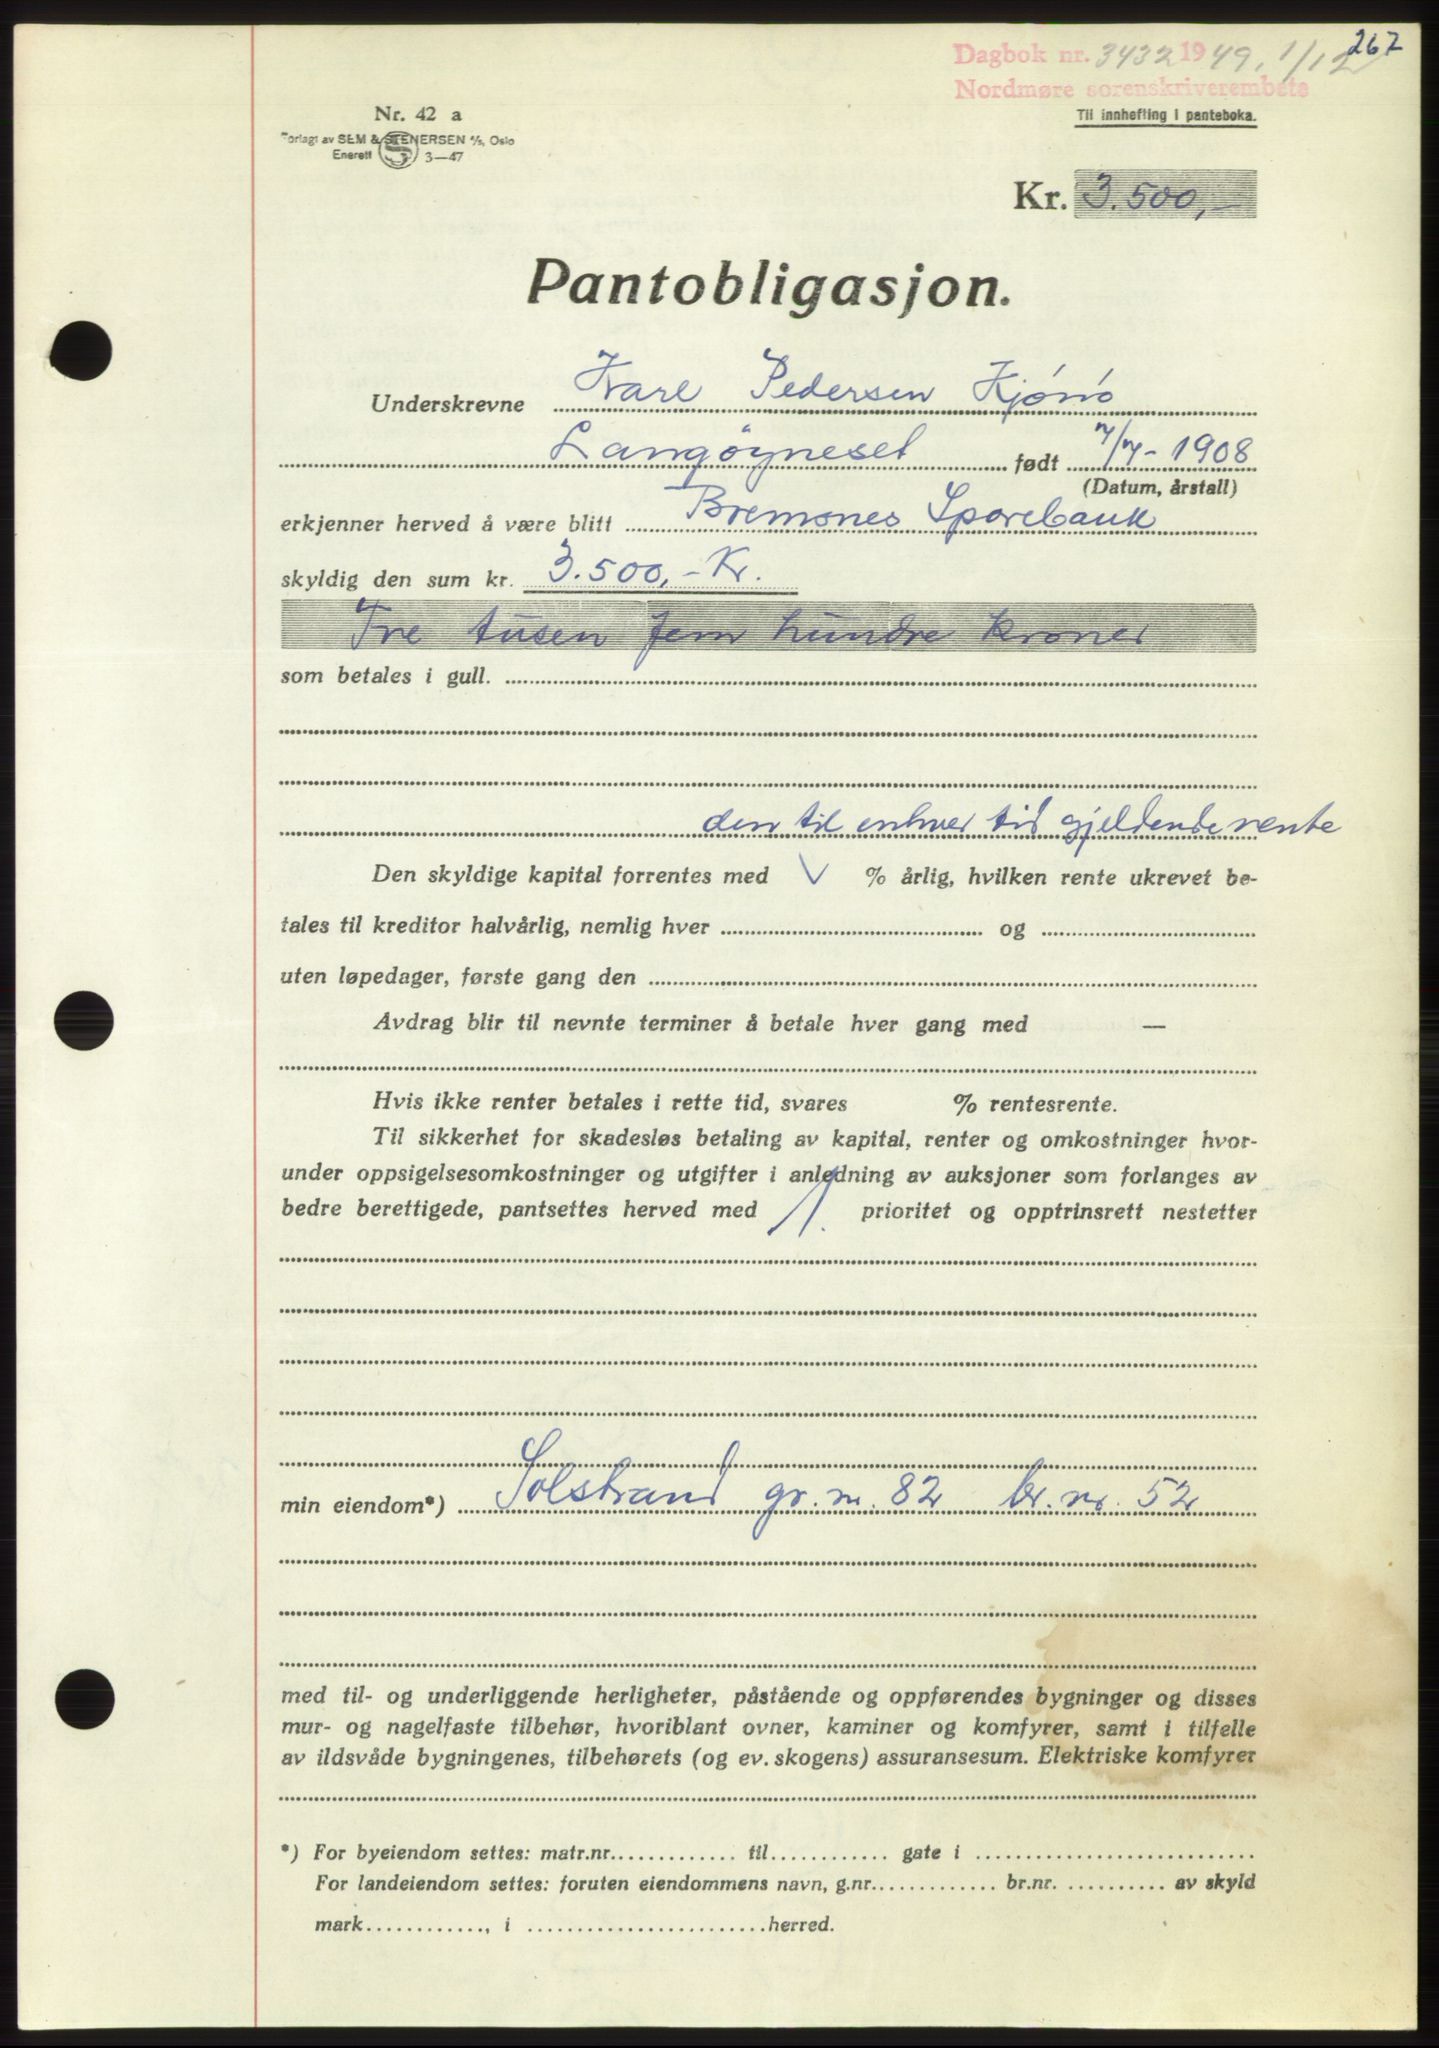 267
Dagbok nr. 3432 1949, 1/12
Nordmøre sorenskriverembete
Nr. 42 a
Til innhefting i panteboka.
Forlagt av SEM & STENERSEN A/S, Oslo
Enerett 3—47
Kr. 3.500,-
Pantobligasjon.
Underskrevne Kare Pedersen Kjönö
Langöyneset født 7/7-1908
(Datum, årstall)
erkjenner herved å være blitt Bremsnes Sparebank
skyldig den sum kr. 3.500,- Kr.
Tre tusen fem hundre kroner
som betales i gull.
den til enhver tid gjeldende rente
Den skyldige kapital forrentes med % årlig, hvilken rente ukrevet be-
tales til kreditor halvårlig, nemlig hver og
uten løpedager, første gang den
Avdrag blir til nevnte terminer å betale hver gang med —
Hvis ikke renter betales i rette tid, svares % rentesrente.
Til sikkerhet for skadesløs betaling av kapital, renter og omkostninger hvor-
under oppsigelsesomkostninger og utgifter i anledning av auksjoner som forlanges av
bedre berettigede, pantsettes herved med 1. prioritet og opptrinsrett nestetter
min eiendom*) Solstrand gr. nr. 82 br. nr. 52
med til- og underliggende herligheter, påstående og oppførendes bygninger og disses
mur- og nagelfaste tilbehør, hvoriblant ovner, kaminer og komfyrer, samt i tilfelle
av ildsvåde bygningenes, tilbehørets (og ev. skogens) assuransesum. Elektriske komfyrer
*) For byeiendom settes: matr.nr. til gate i
For landeiendom settes: foruten eiendommens navn, g.nr. br.nr. av skyld
mark , i herred.